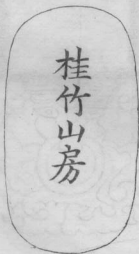 桂竹山房